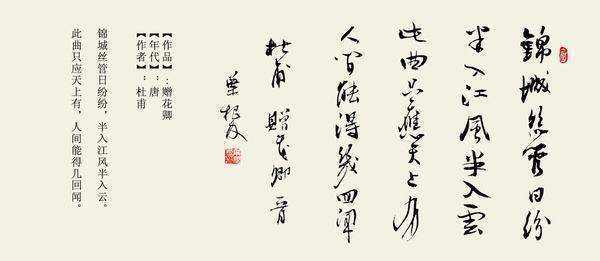 錦城絲管日紛
半入江風半入雲
此曲只應天上有
人間能得幾回聞
杜甫 贈花卿
葉根友
【作品】:赠花卿
【年代】:唐
【作者】:杜甫
锦城丝管日纷纷,半入江风半入云。
此曲只应天上有,人间能得几回闻。